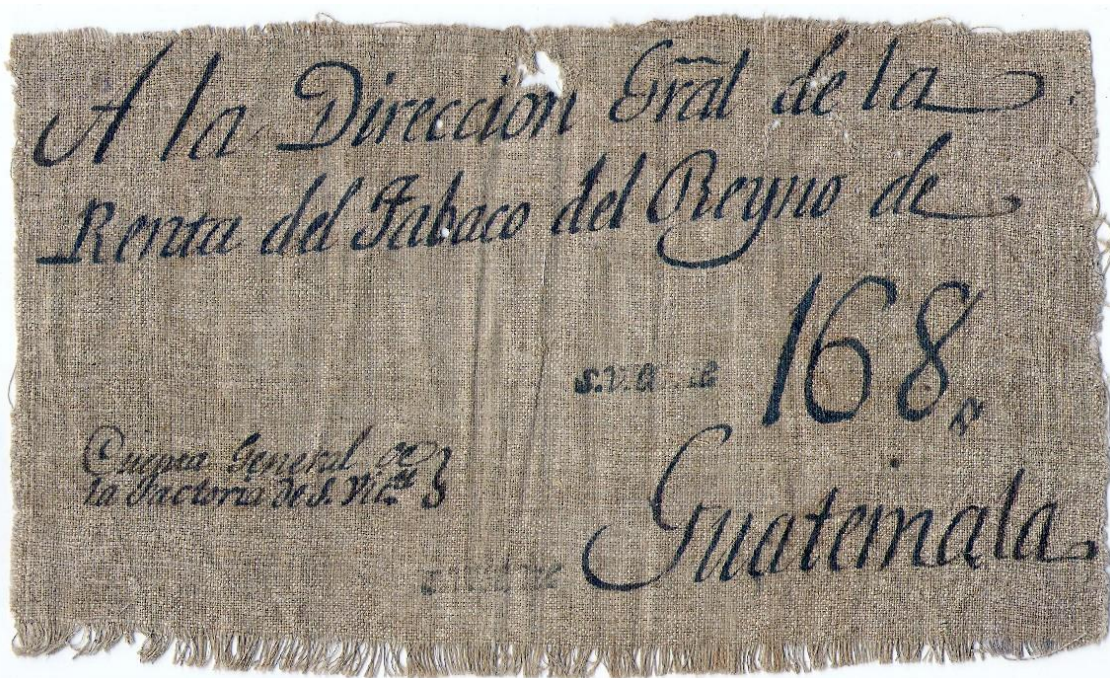 A la Direccion Grãl de la
Renta del Tabaco del Reyno de
168
Cuenta General de
la Factoria de S. Vic.te
Guatemala